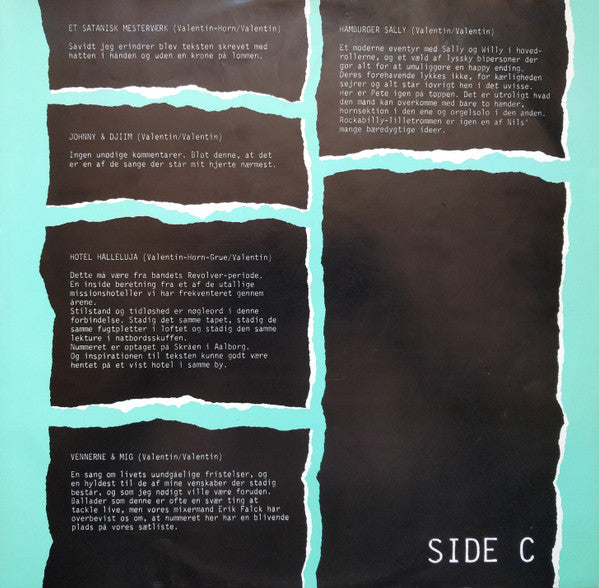 ET SATANISK MESTERVÆRK (Valentin-Horn/Valentin)
Savidt jeg erindrer blev teksten skrevet med
hatten i handen og uden en krone på lommen.
JOHNNY & DJIIM (Valentin/Valentin)
Ingen unødige kommentarer. Blot denne, at det
er en af de sange der står mit hjerte nærmest.
HOTEL HALLELUJA (Valentin-Horn-Grue/Valentin)
Dette må være fra bandets Revolver-periode.
En inside beretning fra et af de utallige
missionshoteller vi har frekventeret gennem
årene.
Stilstand og tidløshed er nøgleord i denne
forbindelse. Stadig det samme tapet, stadig de
samme fugtpletter i loftet og stadig den samme
lekture i natbordsskuffen.
Nummeret er optaget på Skråen i Aalborg.
Og inspirationen til teksten kunne godt være
hentet på et vist hotel i samme by.
VENNERNE & MIG (Valentin/Valentin)
En sang om livets uundgåelige fristelser, og
en hyldest til de af mine venskaber der stadig
består, og som jeg nødigt ville være foruden.
Ballader som denne er ofte en svær ting at
tackle live, men vores mixermand Erik Falck har
overbevist os om, at nummeret her har en blivende
plads på vores sætliste.
HAMBURGER SALLY (Valentin/Valentin)
Et moderne eventyr med Sally og Willy i hoved-
rollerne, og et væld af lyssky bipersoner der
gør alt for at umuliggøre en happy ending.
Deres forehavende lykkes ikke, for kærligheden
sejrer og alt står iøvrigt hen i det uvisse.
Her er Pete igen på toppen. Det er utroligt hvad
den mand kan overkomme med bare to hænder,
hornsektion i den ene og orgelsolo i den anden.
Rockabilly-lilletrommen er igen en af Nils'
mange bæredygtige ideer.
SIDE C